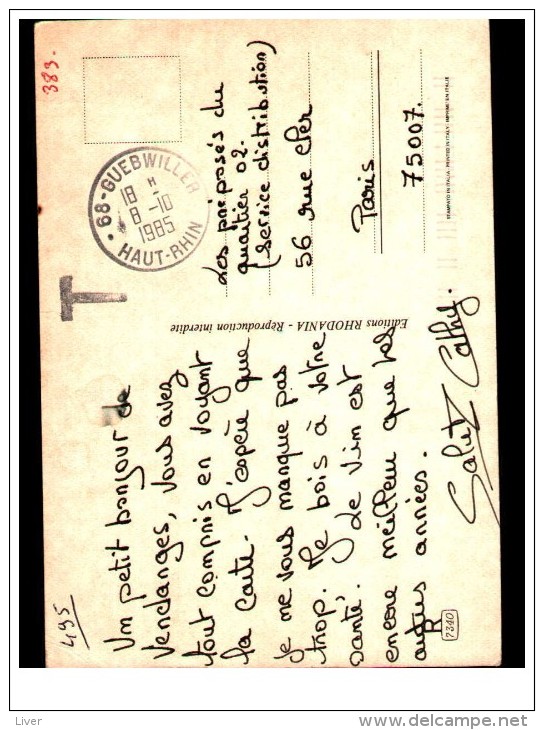 495
Un petit bonjour de
Vendanges, vous avez
tout compris en voyant
la carte. J'espère que
je ne vous manque pas
trop. Je bois à votre
santé. Le vin est
encore meilleur que les
autres années.
Salut Cathy.
R
7340
Editions RHODANIA - Réproduction interdite
T
68-GUEBWILLER
18 H
8-10
1985
HAUT-RHIN
383.
Les préposés du
quartier 02.
(service distribution)
56 rue Cler
Paris
75007.
STAMPATO IN ITALIA. PRINTED IN ITALY. IMPRIMÉ EN ITALIE
Liver
www.delcampe.net